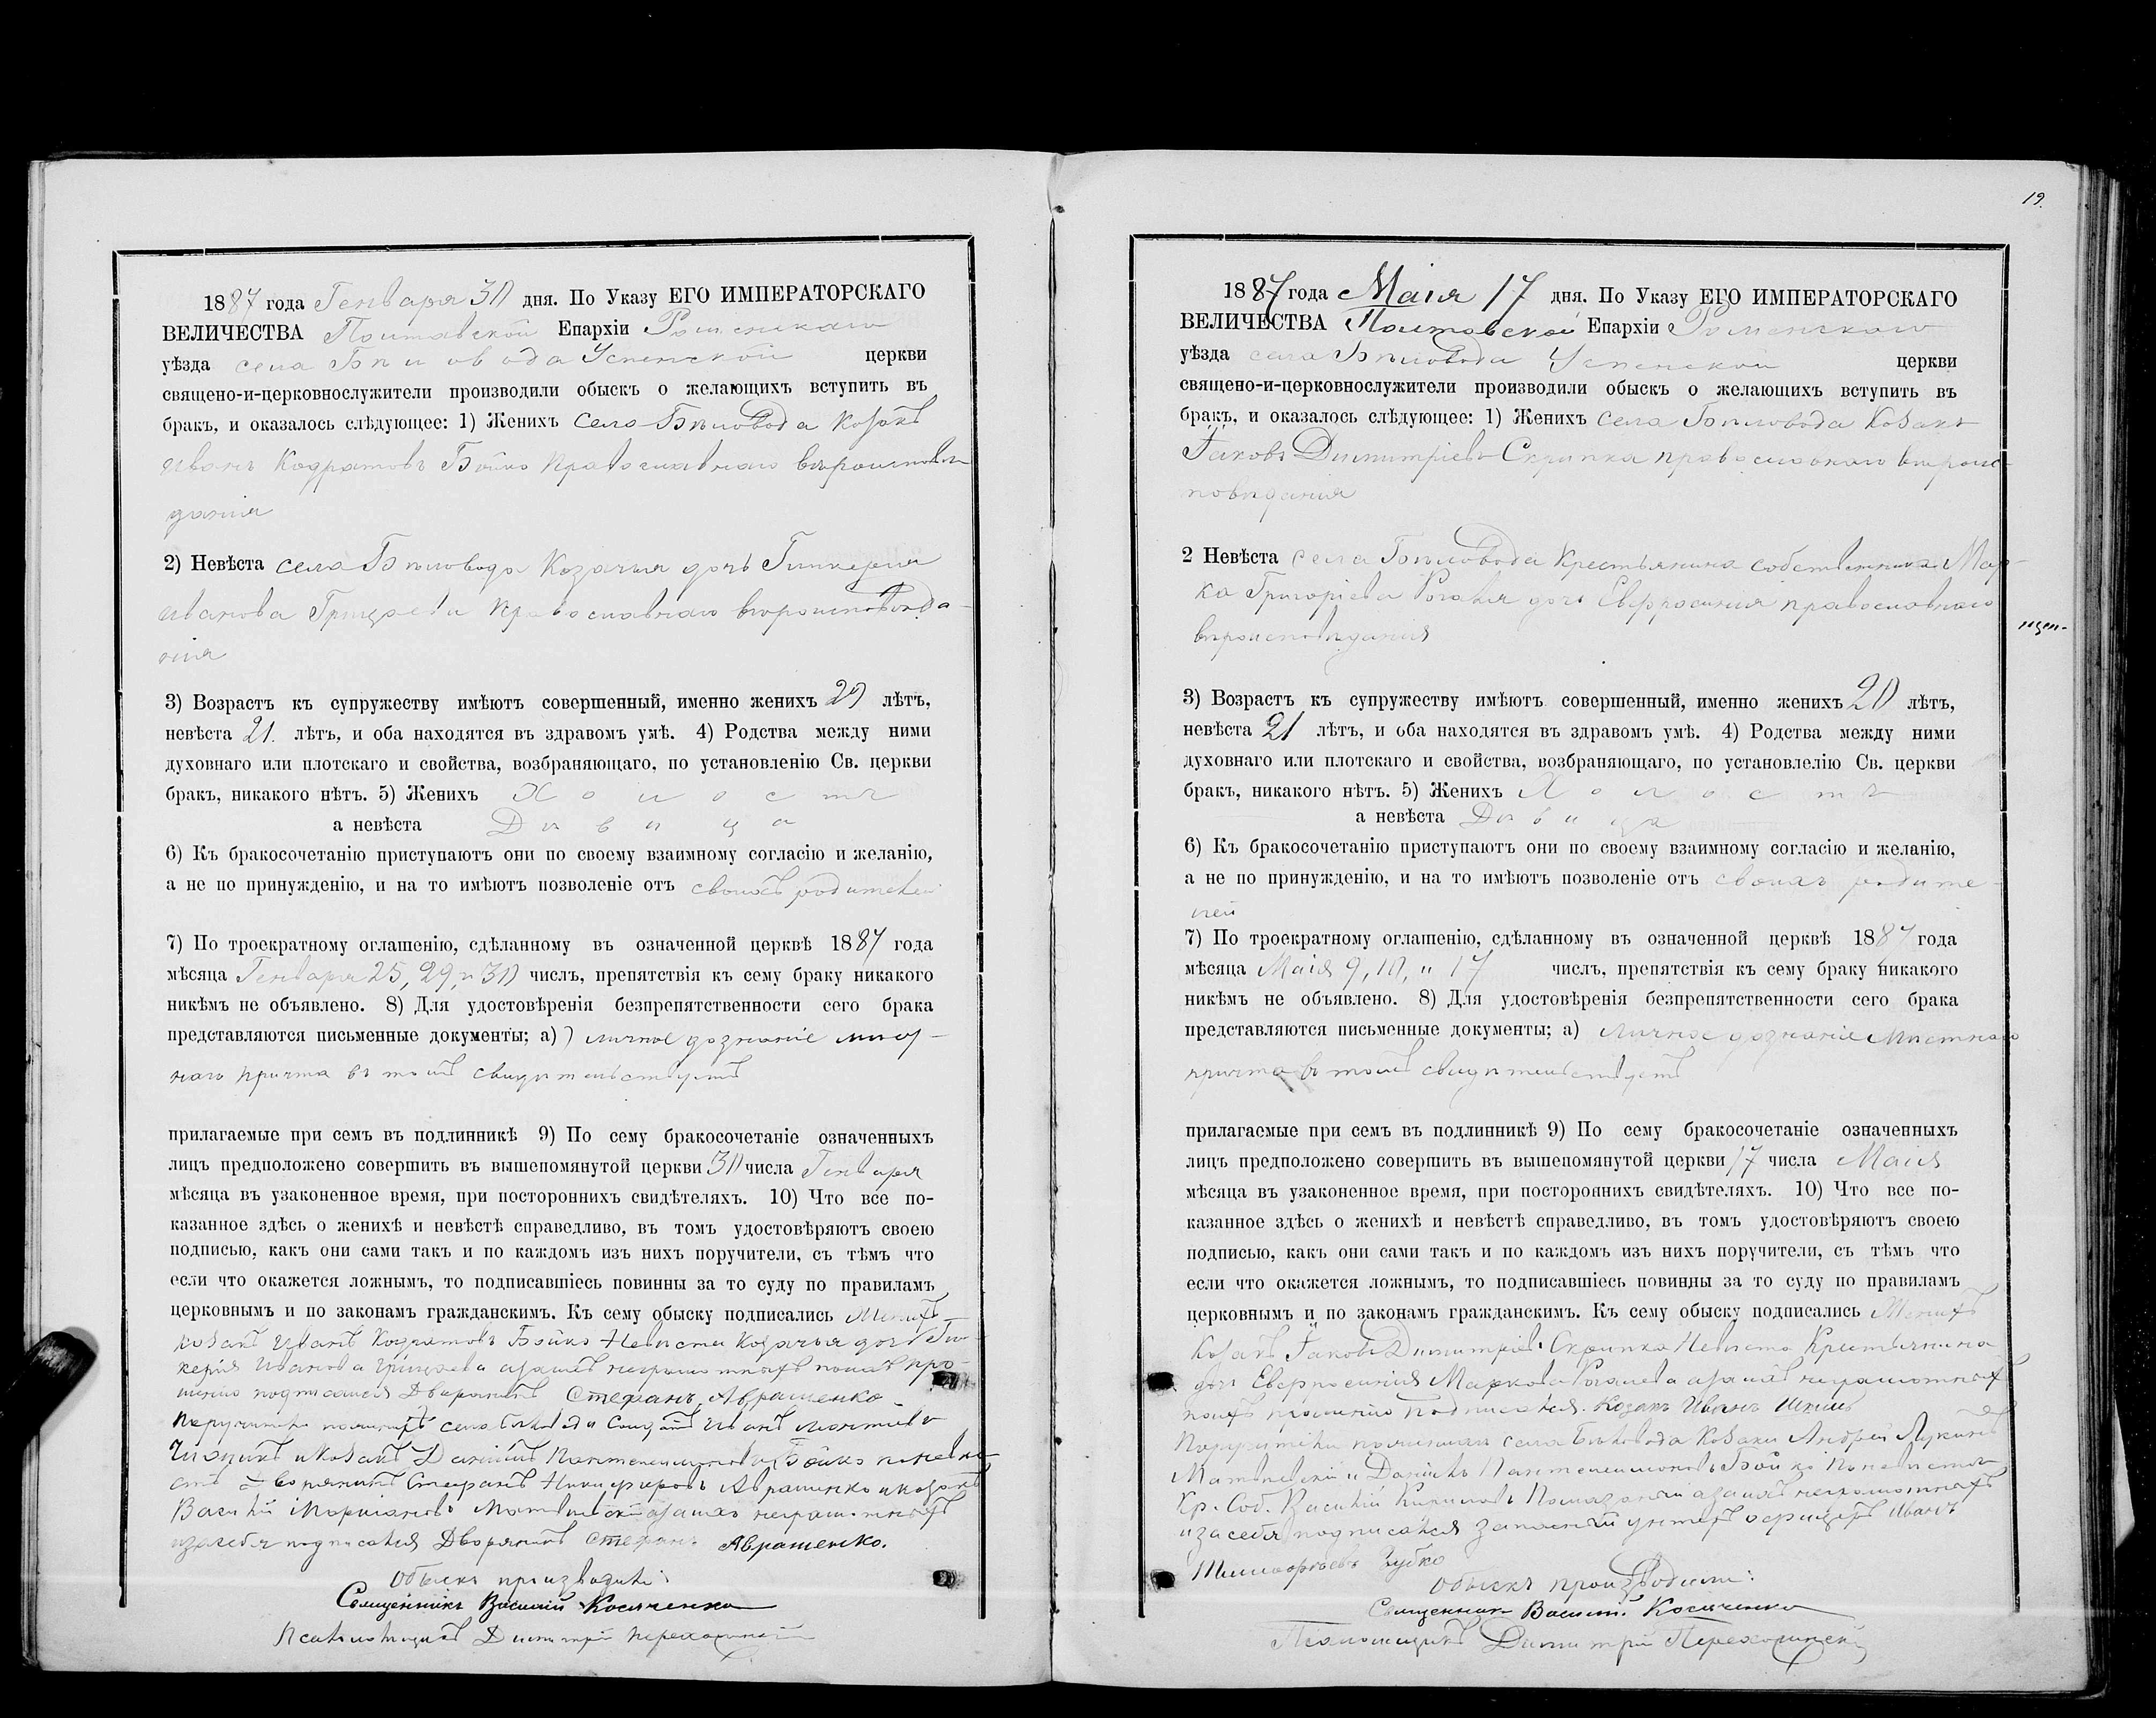 1887 года Генваря 30 дня. По Указу ЕГО ИМПЕРАТОРСКАГО
ВЕЛИЧЕСТВА Полтавской Епархіи Роменскаго
уѣзда села Бѣловода Успенской церкви
священо-и-церковнослужители производили обыскъ о желающихъ вступить въ
бракъ, и оказалось слѣдующее: 1) Женихъ села Бѣловода Козакъ
Иванъ Кодратовъ Бойко Православнаго вѣроисповѣ
данія
2) Невѣста села Бѣловода Козачья дочь Гликерія
Иванова Грицаева Православнаго вѣроисповѣда-
нія
3) Возрастъ къ супружеству имѣютъ совершенный, именно женихъ лѣтъ,
невѣста 21. лѣтъ, и оба находятся въ здравомъ умѣ. 4) Родства между ними
духовнаго или плотскаго и свойства, возбраняющаго, по установленію Св. церкви
бракъ, никакого нѣтъ. 5) Женихъ Холостъ
а невѣста Дѣвица
6) Къ бракосочетанію приступаютъ они по своему взаимному согласію и желанію,
а не по принужденію, и на то имѣютъ позволеніе отъ своихъ родителей
7) По троекратному оглашенію, сдѣланному въ означенной церквѣ 1887 года
мѣсяца Генваря 25, 29, и 30 числъ, препятствія къ сему браку никакого
никѣмъ не объявлено. 8) Для удостовѣренія безпрепятственности сего брака
представляются письменные документы; а) личное дознаніе мѣст-
наго причта въ томъ свидѣтельствуетъ
прилагаемые при семъ въ подлинникѣ 9) По сему бракосочетаніе означенныхъ
лицъ предположено совершить въ вышепомянутой церкви 30 числа Генваря
мѣсяца въ узаконенное время, при постороннихъ свидѣтеляхъ. 10) Что все по-
казанное здѣсь о женихѣ и невѣстѣ справедливо, въ томъ удостовѣряютъ своею
подписью, какъ они сами такъ и по каждомъ изъ нихъ поручители, съ тѣмъ что
если что окажется ложнымъ, то подписавшіесь повинны за то суду по правиламъ
церковнымъ и по законамъ гражданскимъ. Къ сему обыску подписались Женихъ
козакъ Иванъ Кодратовъ Бойко Невѣста Козачья дочь Гли-
керія Иванова Грицаева а за нихъ неграмотныхъ по ихъ про-
шенію подписался Дворянинъ Стефанъ Аврашенко
Поручители по женихѣ села Бѣловода Иванъ
и козакъ Даніилъ Пантелеимоновъ Бойко по невѣ-
стѣ Дворянинъ Стефанъ Никифоровъ Аврашенко и козакъ
Василій а за нихъ неграмотныхъ
и за себя подписался Дворянинъ Стефанъ Аврашенко.
Обыскъ производили:
Священникъ Василій Косяченко
Псаломщикъ Димитрій
19.
1887 года Маія 17 дня. По Указу ЕГО ИМПЕРАТОРСКАГО
ВЕЛИЧЕСТВА Полтавской Епархіи Роменскаго
уѣзда села Бѣловода Успенской церкви
священо-и-церковнослужители производили обыскъ о желающихъ вступить въ
бракъ, и оказалось слѣдующее: 1) Женихъ села Бѣловода Козакъ
Іаковъ Димитріевъ Скрипка православнаго вѣроис-
повѣданія
2 Невѣста села Бѣловода Крестьянина собственника Мар-
ка Григоріева дочь Евфросинія православнаго
вѣроисповѣданія
3) Возрастъ къ супружеству имѣютъ совершенный, именно женихъ 20 лѣтъ,
невѣста 21 лѣтъ, и оба находятся въ здравомъ умѣ. 4) Родства между ними
духовнаго или плотскаго и свойства, возбраняющаго, по установлелію Св. церкви
бракъ, никакого нѣтъ. 5) Женихъ Холостъ
а невѣста Дѣвица
6) Къ бракосочетанію приступаютъ они по своему взаимному согласію и желанію,
а не по принужденію, и на то имѣютъ позволеніе отъ своихъ родите-
лей
7) По троекратному оглашенію, сдѣланному въ означенной церквѣ 1887 года
мѣсяца Маія 9, 10, и 17 числъ, препятствія къ сему браку никакого
никѣмъ не объявлено. 8) Для удостовѣренія безпрепятственности сего брака
представляются письменные документы; а) личное дознаніе мѣстнаго
причта въ томъ свидѣтельствуетъ
прилагаемые при семъ въ подлинникѣ 9) По сему бракосочетаніе означенныхъ
лицъ предположено совершить въ вышепомянутой церкви 17 числа Маія
мѣсяца въ узаконенное время, при постороннихъ свидѣтеляхъ. 10) Что все по-
казанное здѣсь о женихѣ и невѣстѣ справедливо, въ томъ удостовѣряютъ своею
подписью, какъ они сами такъ и по каждомъ изъ нихъ поручители, съ тѣмъ что
если что окажется ложнымъ, то подписавшіесь повинны за то суду по правиламъ
церковнымъ и по законамъ гражданскимъ. Къ сему обыску подписались Женихъ
Козакъ Іаковъ Димитріевъ Скрипка Невѣста Крестьянина
дочь Евфросинія Маркова а за нихъ неграмотныхъ
по ихъ прошенію подписался Козакъ Иванъ
Поручители по женихѣ села Бѣловода Козаки Андрей Лукинъ
и Даніилъ Пантелеимоновъ Бойко По невѣстѣ
Кр. Соб. Василій Кириловъ а за нихъ неграмотныхъ
и за себя подписался запасный унтеръ офицеръ Иванъ
Тимофѣевъ Зубко
Обыскъ производили:
Священникъ Василій Косяченко
Псаломщикъ Димитрій